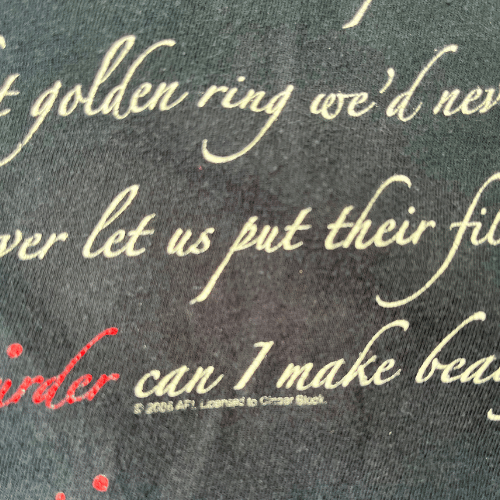 t golden ring we'd nev
ver let us put their fil
urder can I make beau
© 2006 AFI. Licensed to Cinder Block.